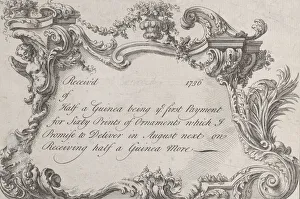 Receiv'd 1756
of
Half a Guinea being ye first Payment
for Sixty Prints of Ornaments which I
Promise to Deliver in August next on
Receiving half a Guinea More